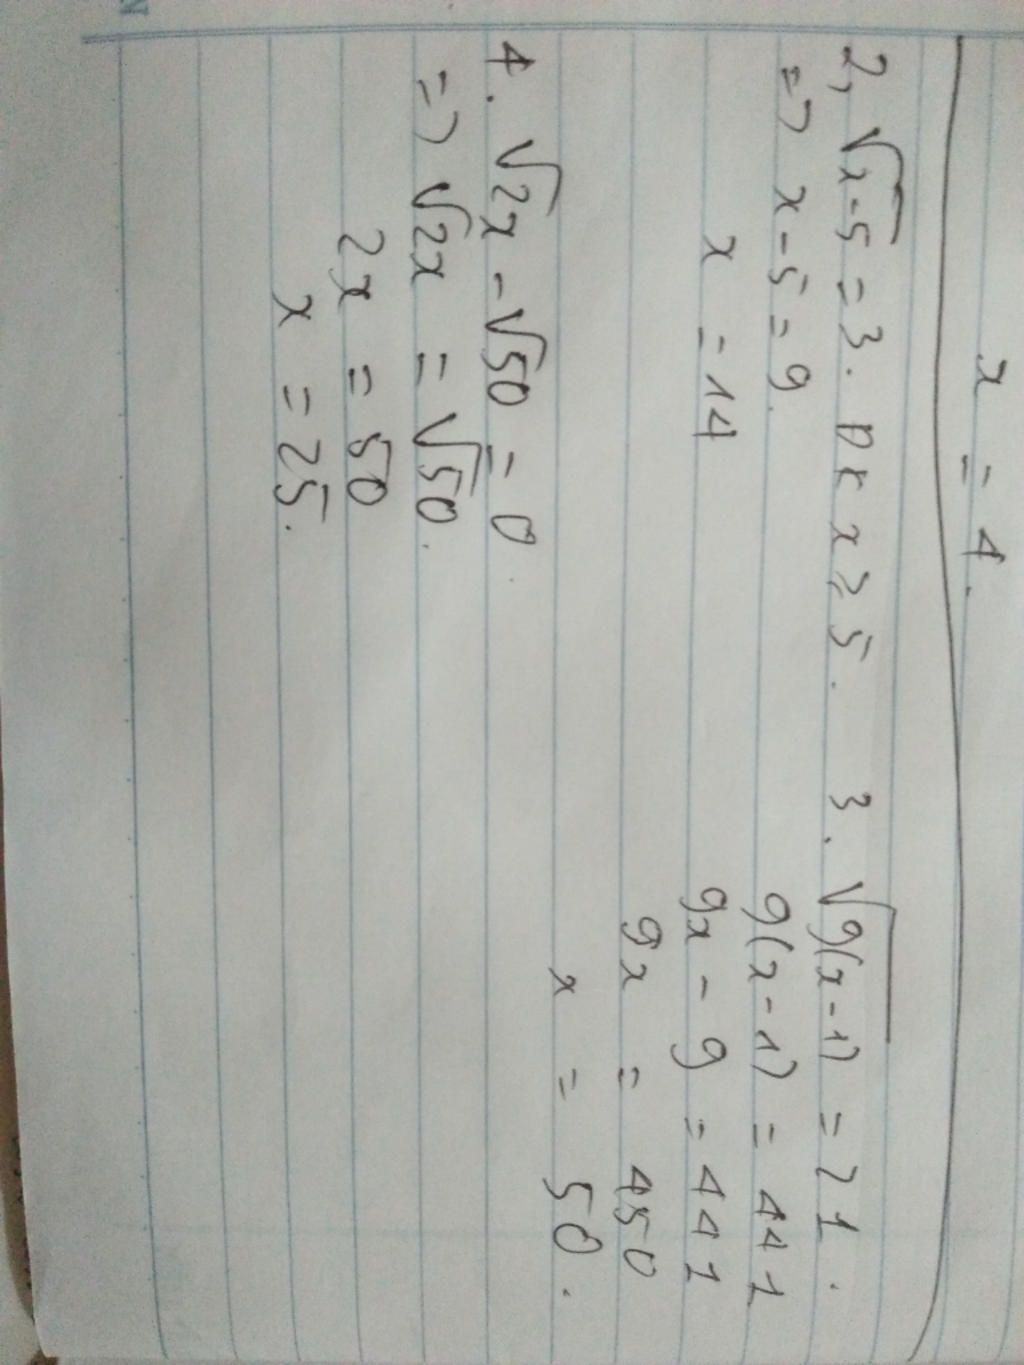 x = 4.
2, √x-5 = 3. DK x ≥ 5.
=> x-5 = 9.
x = 14
3. √9(x-1) = 21.
9(x-1) = 441
9x - 9 = 441
9x = 450
x = 50.
4. √2x - √50 = 0.
=> √2x = √50.
2x = 50
x = 25.